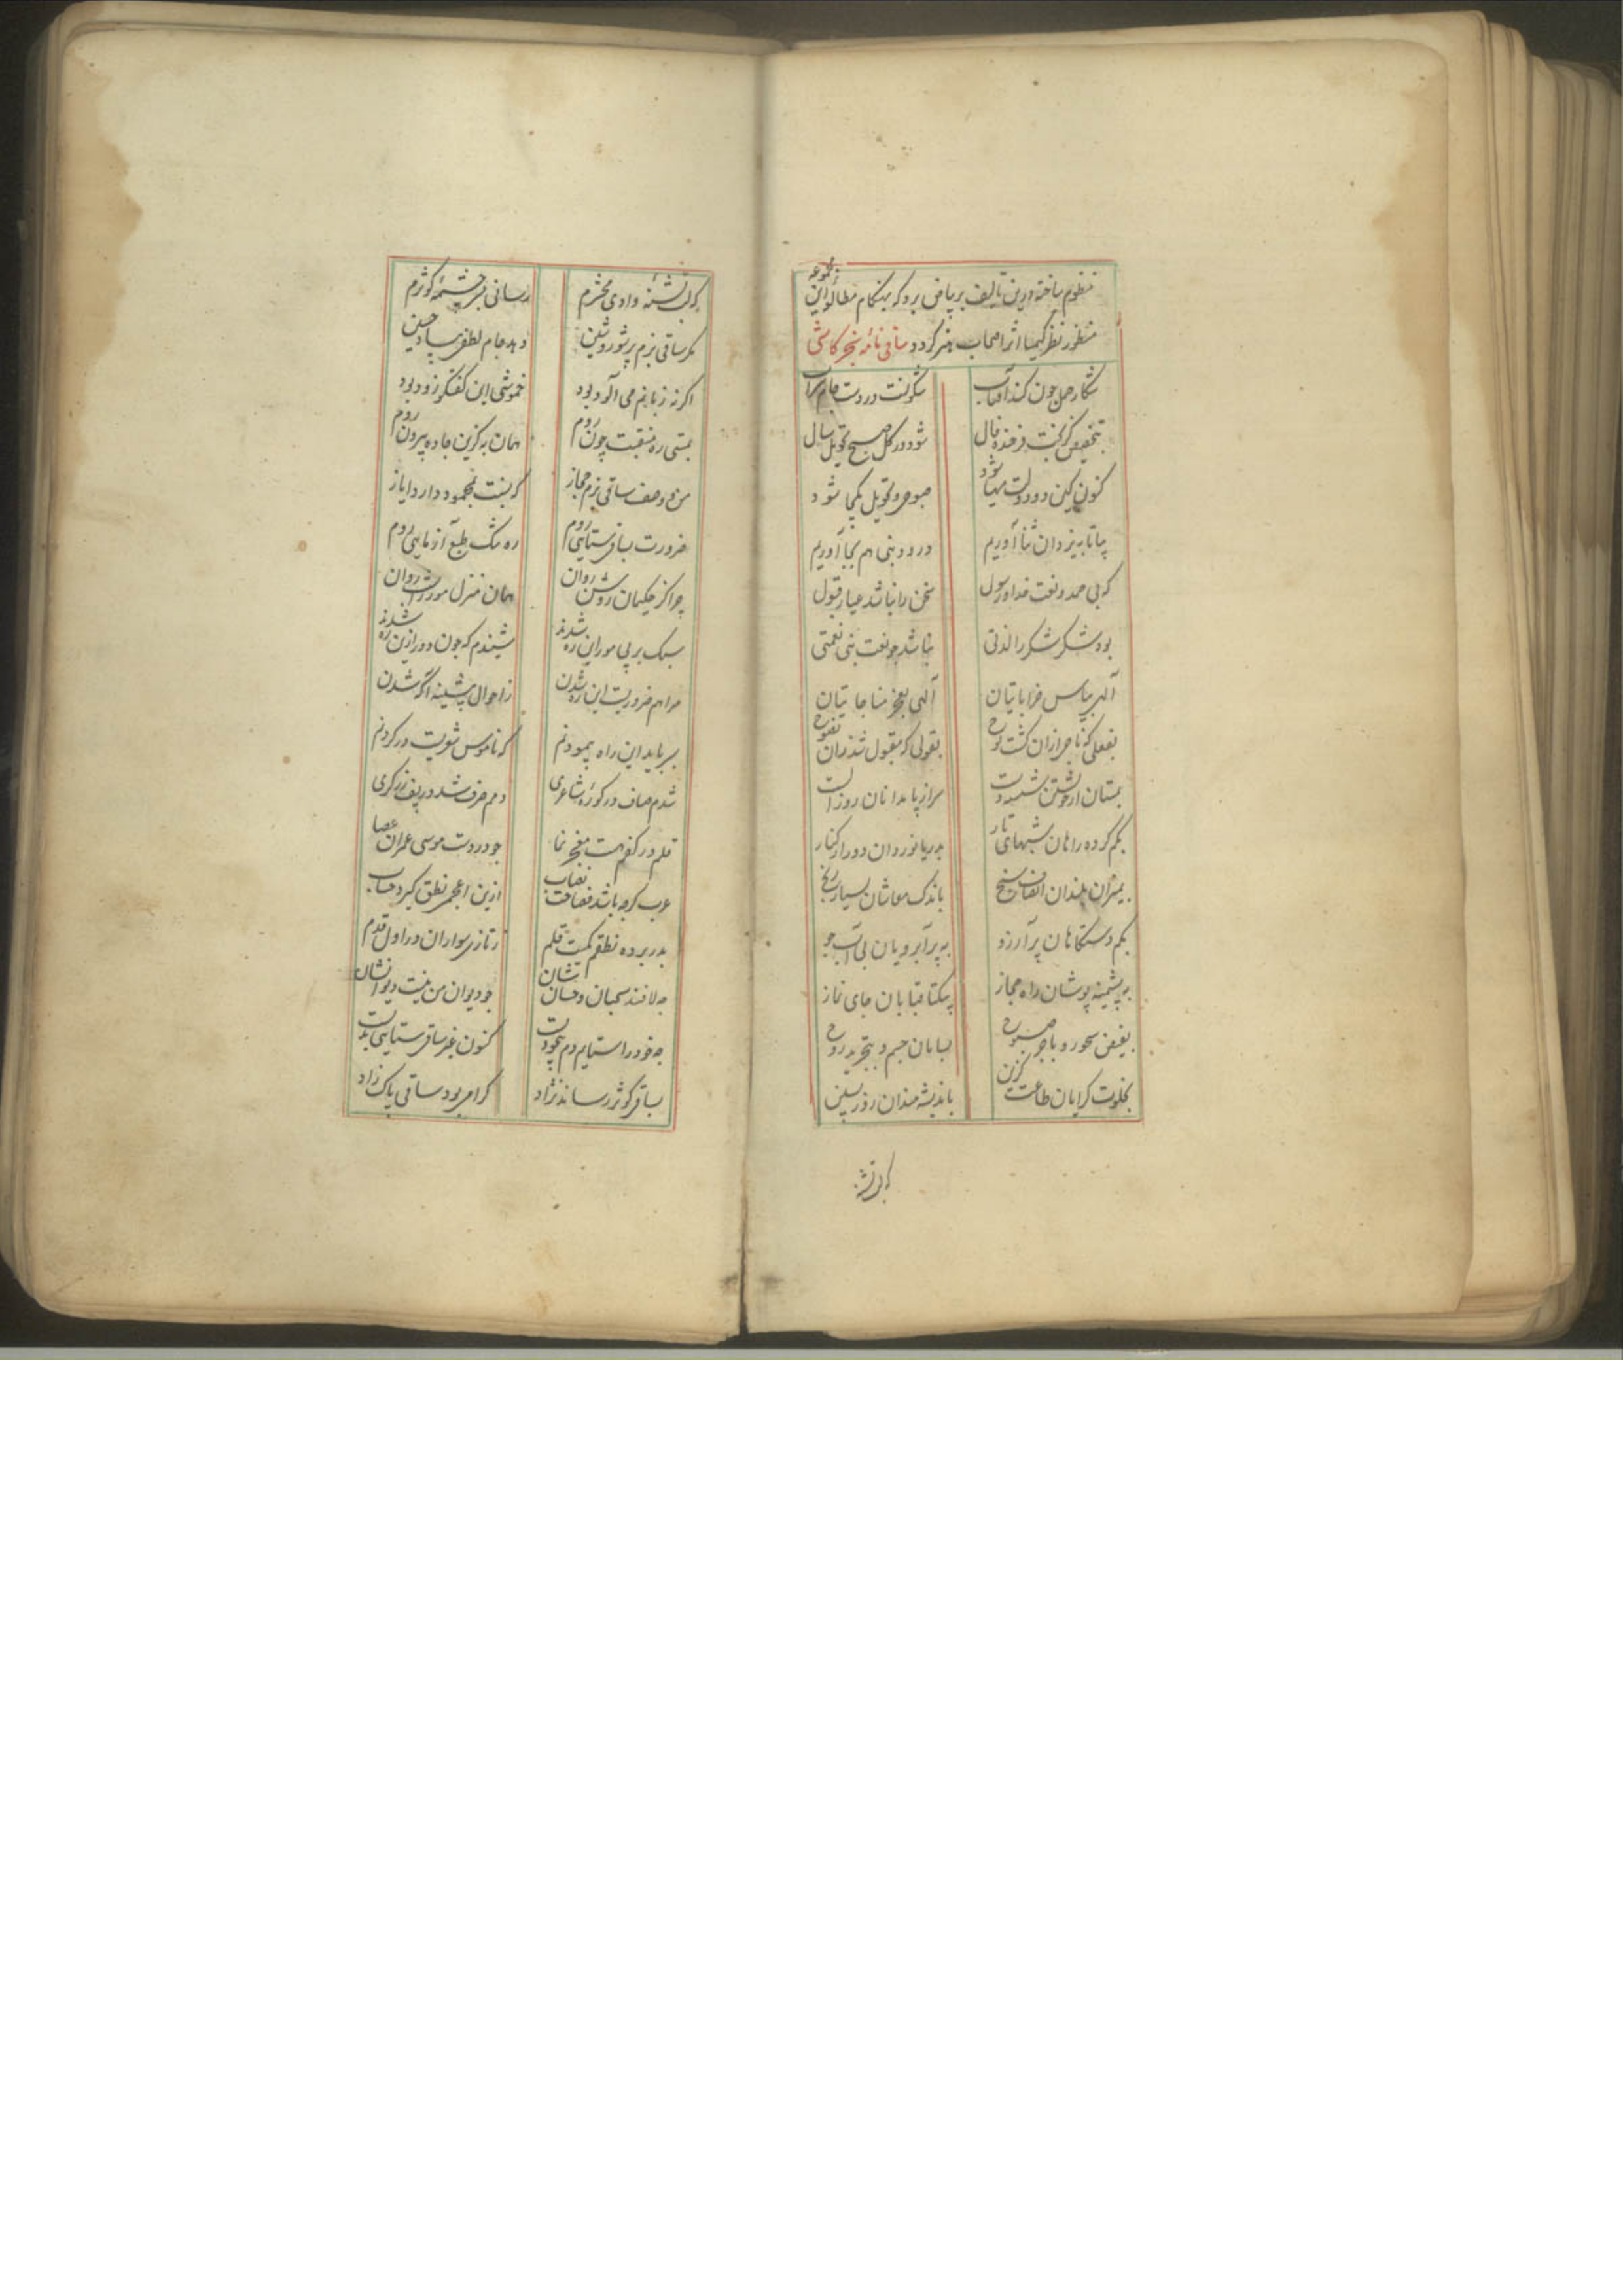 منظوم ساخته درین تالیف بر بیاض برد که بهنگام مطالعه این مجموعه
منظور نظر کیمیا اثر اصحاب هنر گردد ساقی نامه سنجر کاشی
شکار حمل چون کند آفتاب شکونست در دست جام شراب
بتخصیص کز بخت فرخنده فال شود در گل صبح تحویل سال
کنون کین دو دولت مهیا شود صبوحی و تحویل یکجا شود
بیا تا به یزدان ثنا آوریم درود نبی هم بجا آوریم
که بی حمد و نعت خدا و رسول سخن را نباشد عیار قبول
بود شکر شکر را لذتی نباشد چو نعت نبی نعمتی
الهی بپاس خراباتیان الهی بعجز مناجاتیان
بفعلی که ناجی ازان گشت نوح بقولی که مقبول شد زان نصوح
بمستان از خویشتن شسته دست سر از پا ندانان روز الست
بگم کرده راهان شبهای تار بدریا نوردان دور از کنار
بمیزان بلندان انصاف سنج باندک معاشان بسیار رنج
بکم دستگاهان پر آرزو به پر آبرویان بی آب جو
به پشمینه پوشان راه مجاز بیکتا قبایان جای نماز
بفیض سحور و باجر صبوح بسامان جسم و بتجرید روح
بخلوت گرایان طاعت گزین باندیشه مندان روز پسین
که لب تشنه
که لب تشنه وادی محشرم رسانی بسرچشمه کوثرم
مگر ساقی بزم پر شور و شین دهد جام لطفی بیاد حسین
اگر نه زبانم می آلود بود خموشی این گفتگو زود بود
بمستی ره منقبت چون روم همان به کزین جاده بیرون روم
من و وصف ساقی بزم مجاز که نسبت بمحمود دارد ایاز
ضرورت بساقی ستایی روم ره سبک طبع آزمایی روم
چرا کز حکیمان روشن روان همان منزل مورث است روان
سبک بر پی مور این ره شدند شنیدم که چون دور ازین ره شدند
مرا هم ضرورست این ره شدن ز احوال پیشینه آگه شدن
بسر باید این راه پیمودنم که ناموس شعرست در گردنم
شدم صاف در کوره شاعری دمم صرف شد در پف زرگری
قلم در کفم هست معجز نما چو در دست موسی عمران عصا
عرب گرچه باشد فصاحت نصاب ازین اعجمی نطق گیرد حساب
بدر برده نطقم کمیت قلم ز تازی سواران در اول قدم
چه لافند سحبان و حسان نشان چو دیوان من نیست دیوانشان
چه خود را ستایم دم بیخودیست کنون غیر ساقی ستایی بدست
بساقی کوثر رساند نژاد گرامی بود ساقی پاک زاد